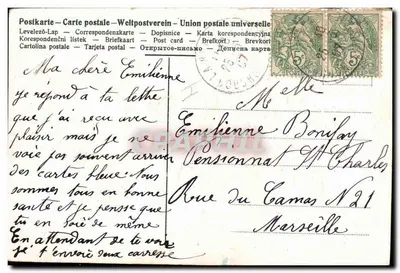 Postkarte - Carte postale - Weltpostverein - Union postale universelle
Levelező-Lap — Correspondenzkarte — Dopisnice — Karta korespondencyjna
Korespondenční lístek — Briefkaart — Post card — Brefkort — Brevkort
Cartolina postale — Tarjeta postal — Открытое письмо — Дописна карта
Ma chère Emilienne
je répond à ta lettre
que j'ai reçu avec
plaisir mais je ne
voie pas souvent arriver
des cartes bleue. Nous
sommes tous en bonne
santé et je pense que
tu en soie de même
En attendant de te voir
je t'envoie deux caresse
Melle
Emilienne Bonifay
Pensionnat St Charles
Rue du Camas N 21
Marseille
5
5